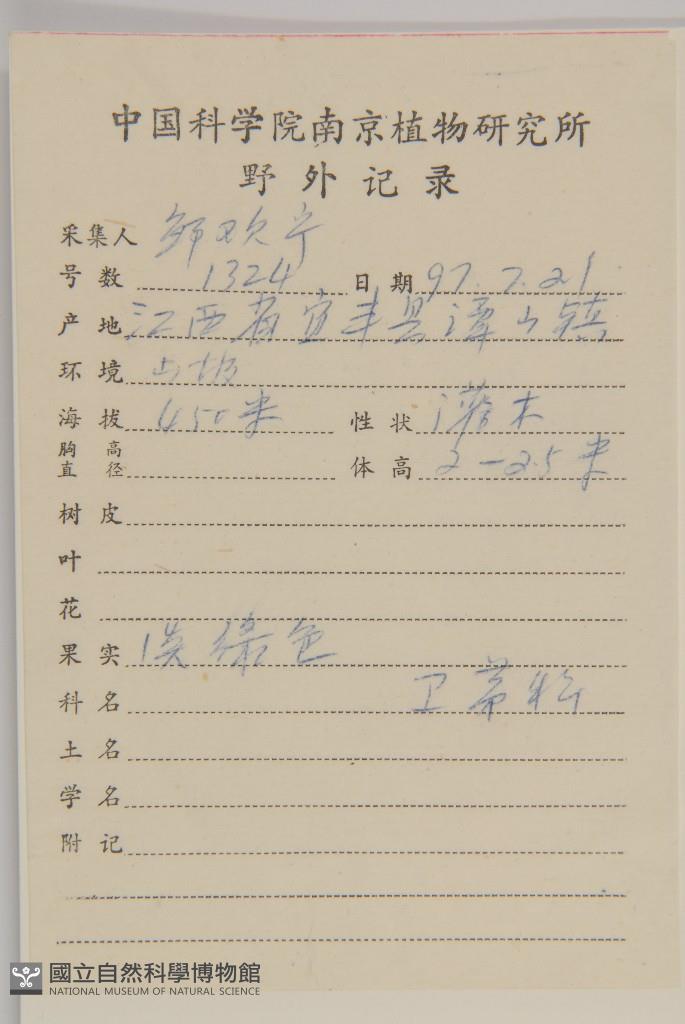 中国科学院南京植物研究所
野外记录
采集人 邹欢宁
号数 1324 日期 97.7.21
产地 江西省宜丰县潭山镇
环境 山坡
海拔 450米 性状 灌木
胸高直径 体高 2-2.5米
树皮
叶
花
果实 淡绿色
科名 卫茅科
土名
学名
附记
國立自然科學博物館
NATIONAL MUSEUM OF NATURAL SCIENCE